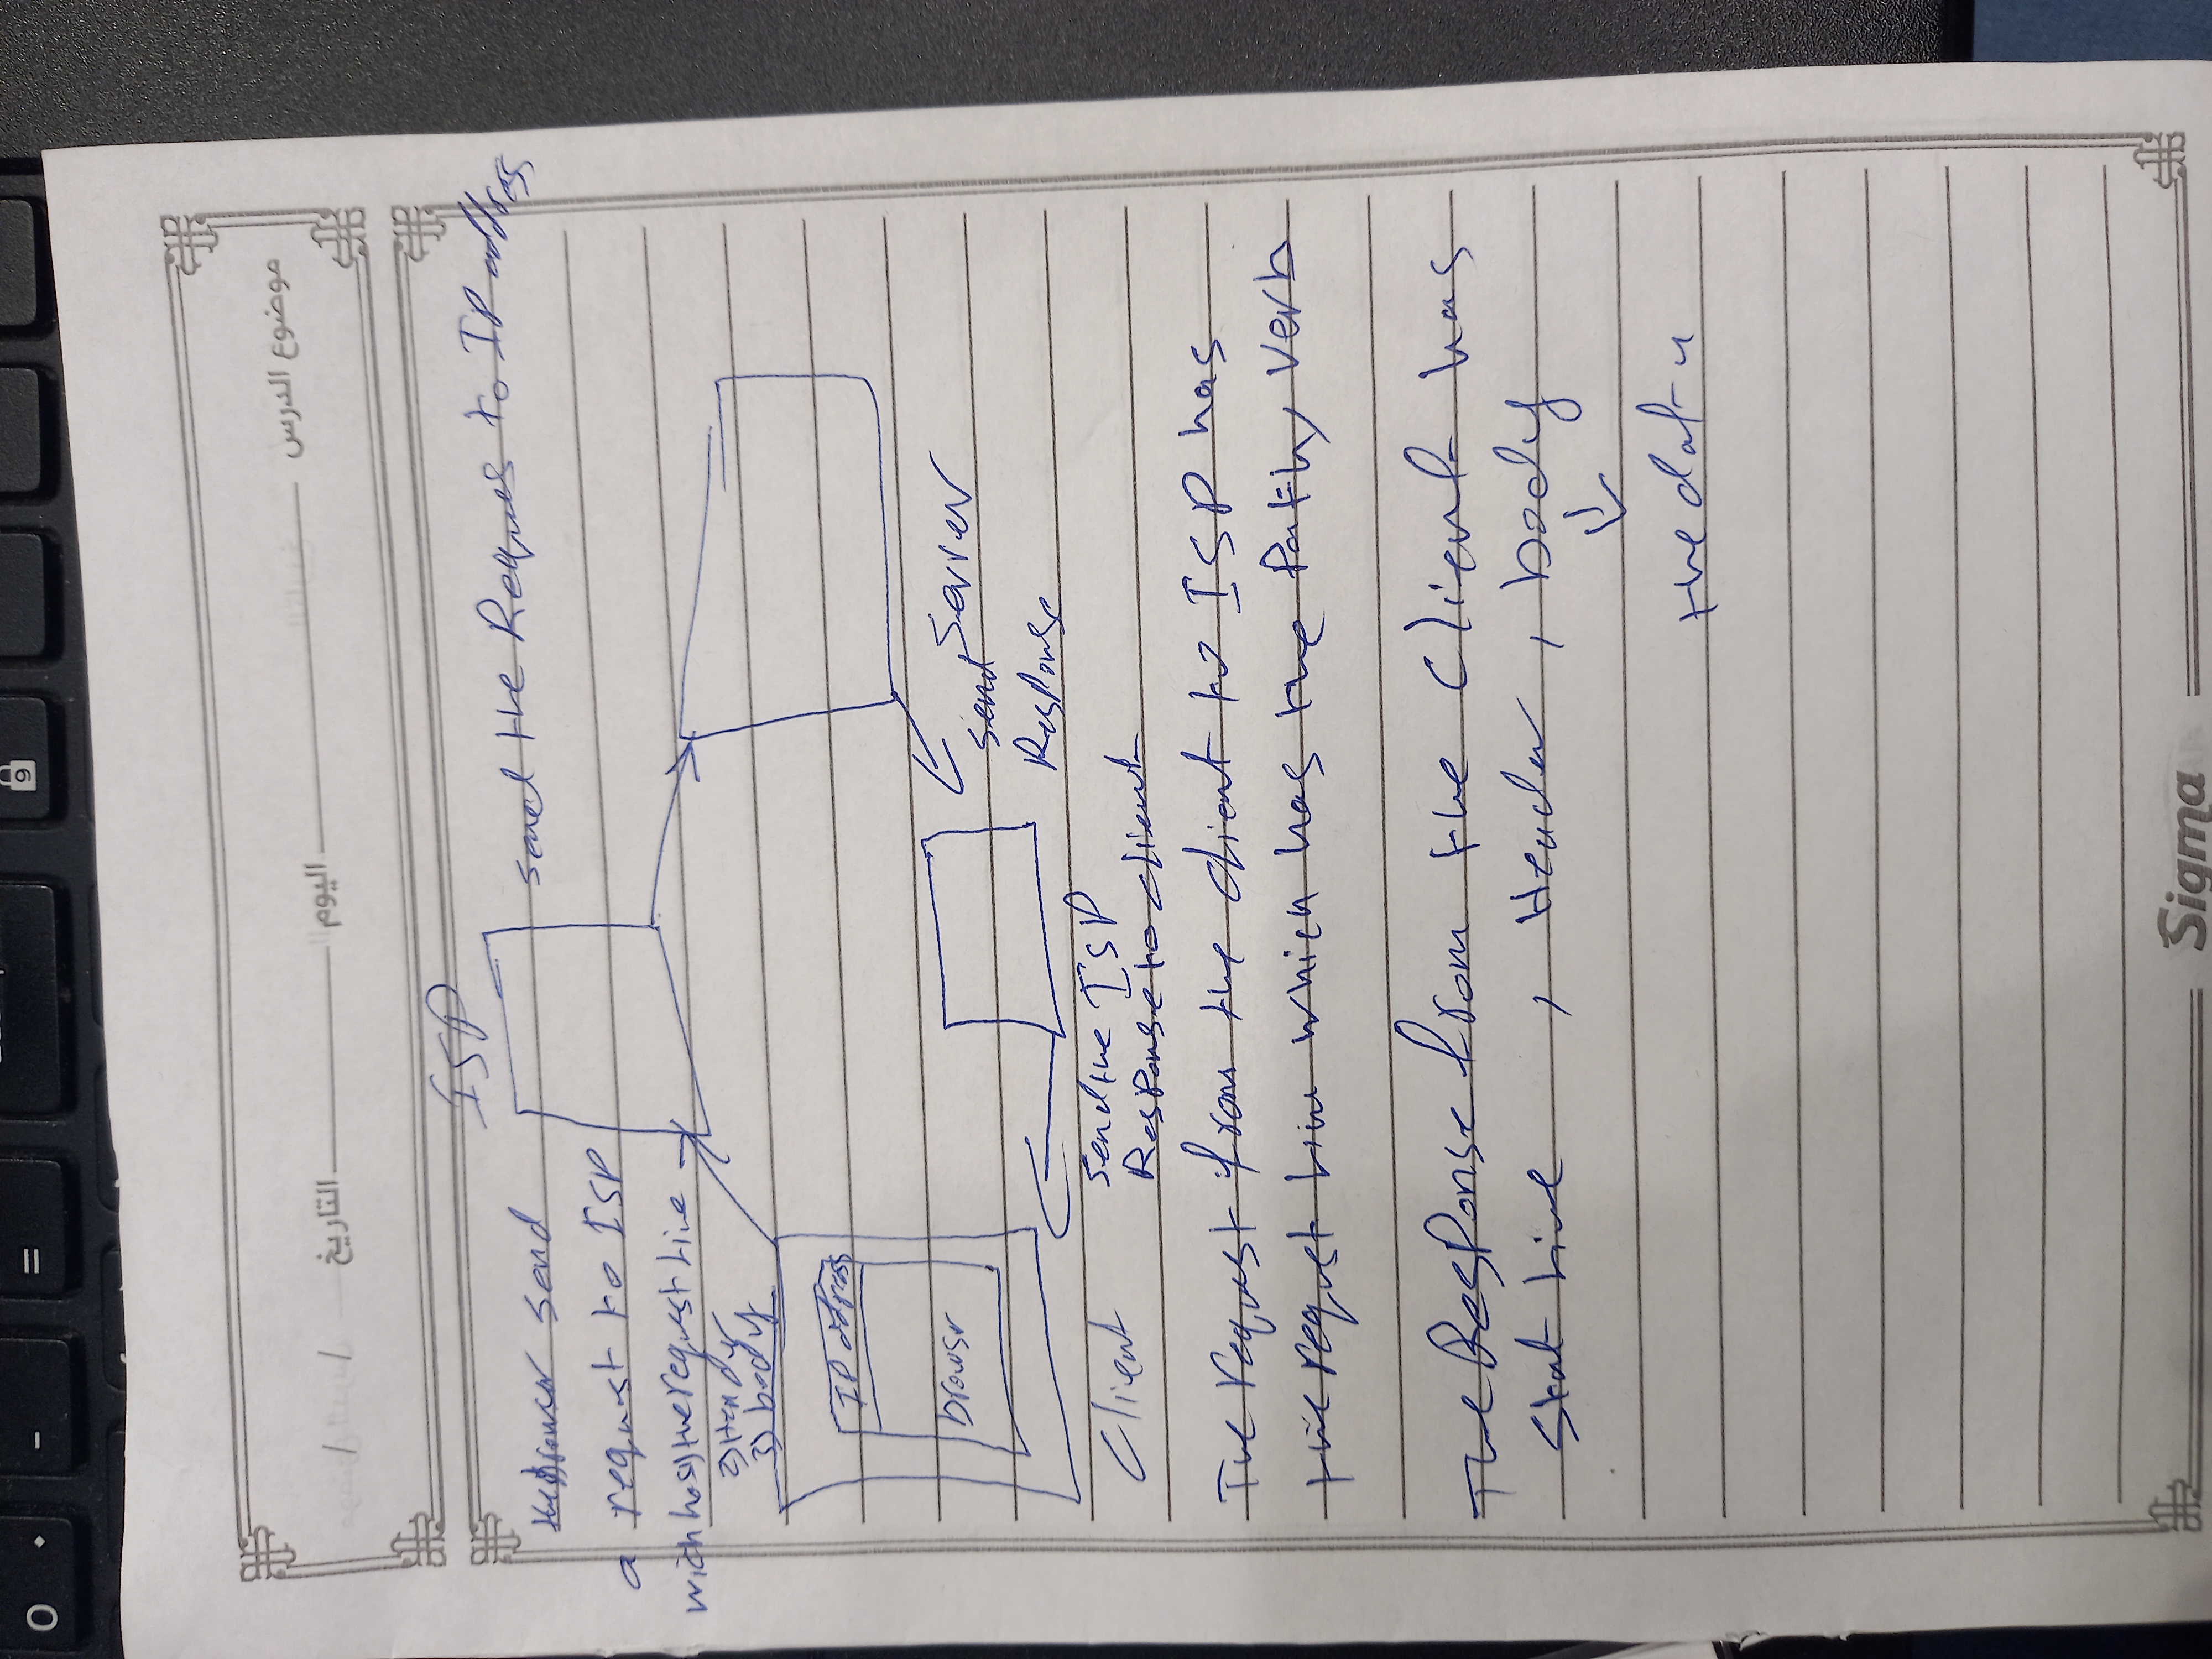 0
-
=
9
موضوع الدرس
اليوم
التاريخ / /
ISP
the browser send
a request to ISP
wich has 1) the request Line
2) Header
3) body
send the Reques to IP address
IP address
browsr
Client
Server
Send
Response
ISP
Send the
Response to client
The request from the client to ISP has
the request Line which has the Path, Verb
The Response from the Client has
Stat Line , Header , body
the data
Sigma